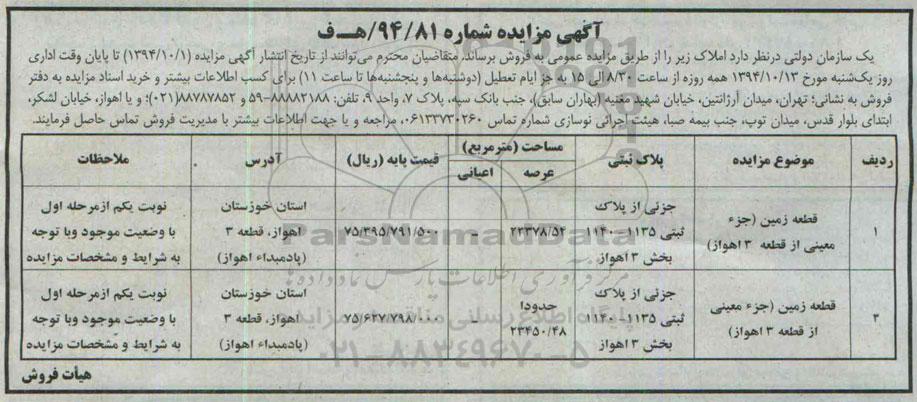 آگهی مزایده شماره ۹۴/۸۱/هـ‌ـف
یک سازمان دولتی درنظر دارد املاک زیر را از طریق مزایده عمومی به فروش برساند، متقاضیان محترم می‌توانند از تاریخ انتشار آگهی مزایده (۱۳۹۴/۱۰/۱) تا پایان وقت اداری
روز یک‌شنبه مورخ ۱۳۹۴/۱۰/۱۳ همه روزه از ساعت ۸/۳۰ الی ۱۵ به جز ایام تعطیل (دوشنبه‌ها و پنجشنبه‌ها تا ساعت ۱۱) برای کسب اطلاعات بیشتر و خرید اسناد مزایده به دفتر
فروش به نشانی: تهران، میدان آرژانتین، خیابان شهید مغنیه (بهاران سابق)، جنب بانک سپه، پلاک ۷، واحد ۹، تلفن: ۸۸۸۸۲۱۸۸-۵۹ و ۸۸۷۸۷۸۵۲(۰۲۱)؛ و یا اهواز، خیابان لشکر،
ابتدای بلوار قدس، میدان توپ، جنب بیمه صبا، هیئت اجرائی نوسازی شماره تماس ۰۶۱۳۳۷۳۰۲۶۰ مراجعه و یا جهت اطلاعات بیشتر با مدیریت فروش تماس حاصل فرمایند.
ردیف موضوع مزایده پلاک ثبتی مساحت (مترمربع) عرصه اعیانی قیمت پایه (ریال) آدرس ملاحظات
۱ قطعه زمین (جزء معینی از قطعه ۳ اهواز) جزئی از پلاک ثبتی ۱۱۳۵-۱۱۴۰ بخش ۳ اهواز ۲۲۳۷۸/۵۴ - ۷۵/۳۹۵/۷۹۱/۵۰۰ استان خوزستان اهواز، قطعه ۳ (پادمبداء اهواز) نوبت یکم ازمرحله اول با وضعیت موجود وبا توجه به شرایط و مشخصات مزایده
۲ قطعه زمین (جزء معینی از قطعه ۳ اهواز) جزئی از پلاک ثبتی ۱۱۳۵-۱۱۴۰ بخش ۳ اهواز حدودا ۲۳۴۵۰/۴۸ - ۷۵/۶۲۷/۷۹۸/۰۰۰ استان خوزستان اهواز، قطعه ۳ (پادمبداء اهواز) نوبت یکم ازمرحله اول با وضعیت موجود وبا توجه به شرایط و مشخصات مزایده
هیأت فروش
ParsNamadData
مرکز فرآوری اطلاعات پارس نماد داده‌ها
پایگاه اطلاع رسانی مناقصه و مزایده
۰۲۱-۸۸۳۴۹۶۷۰-۵